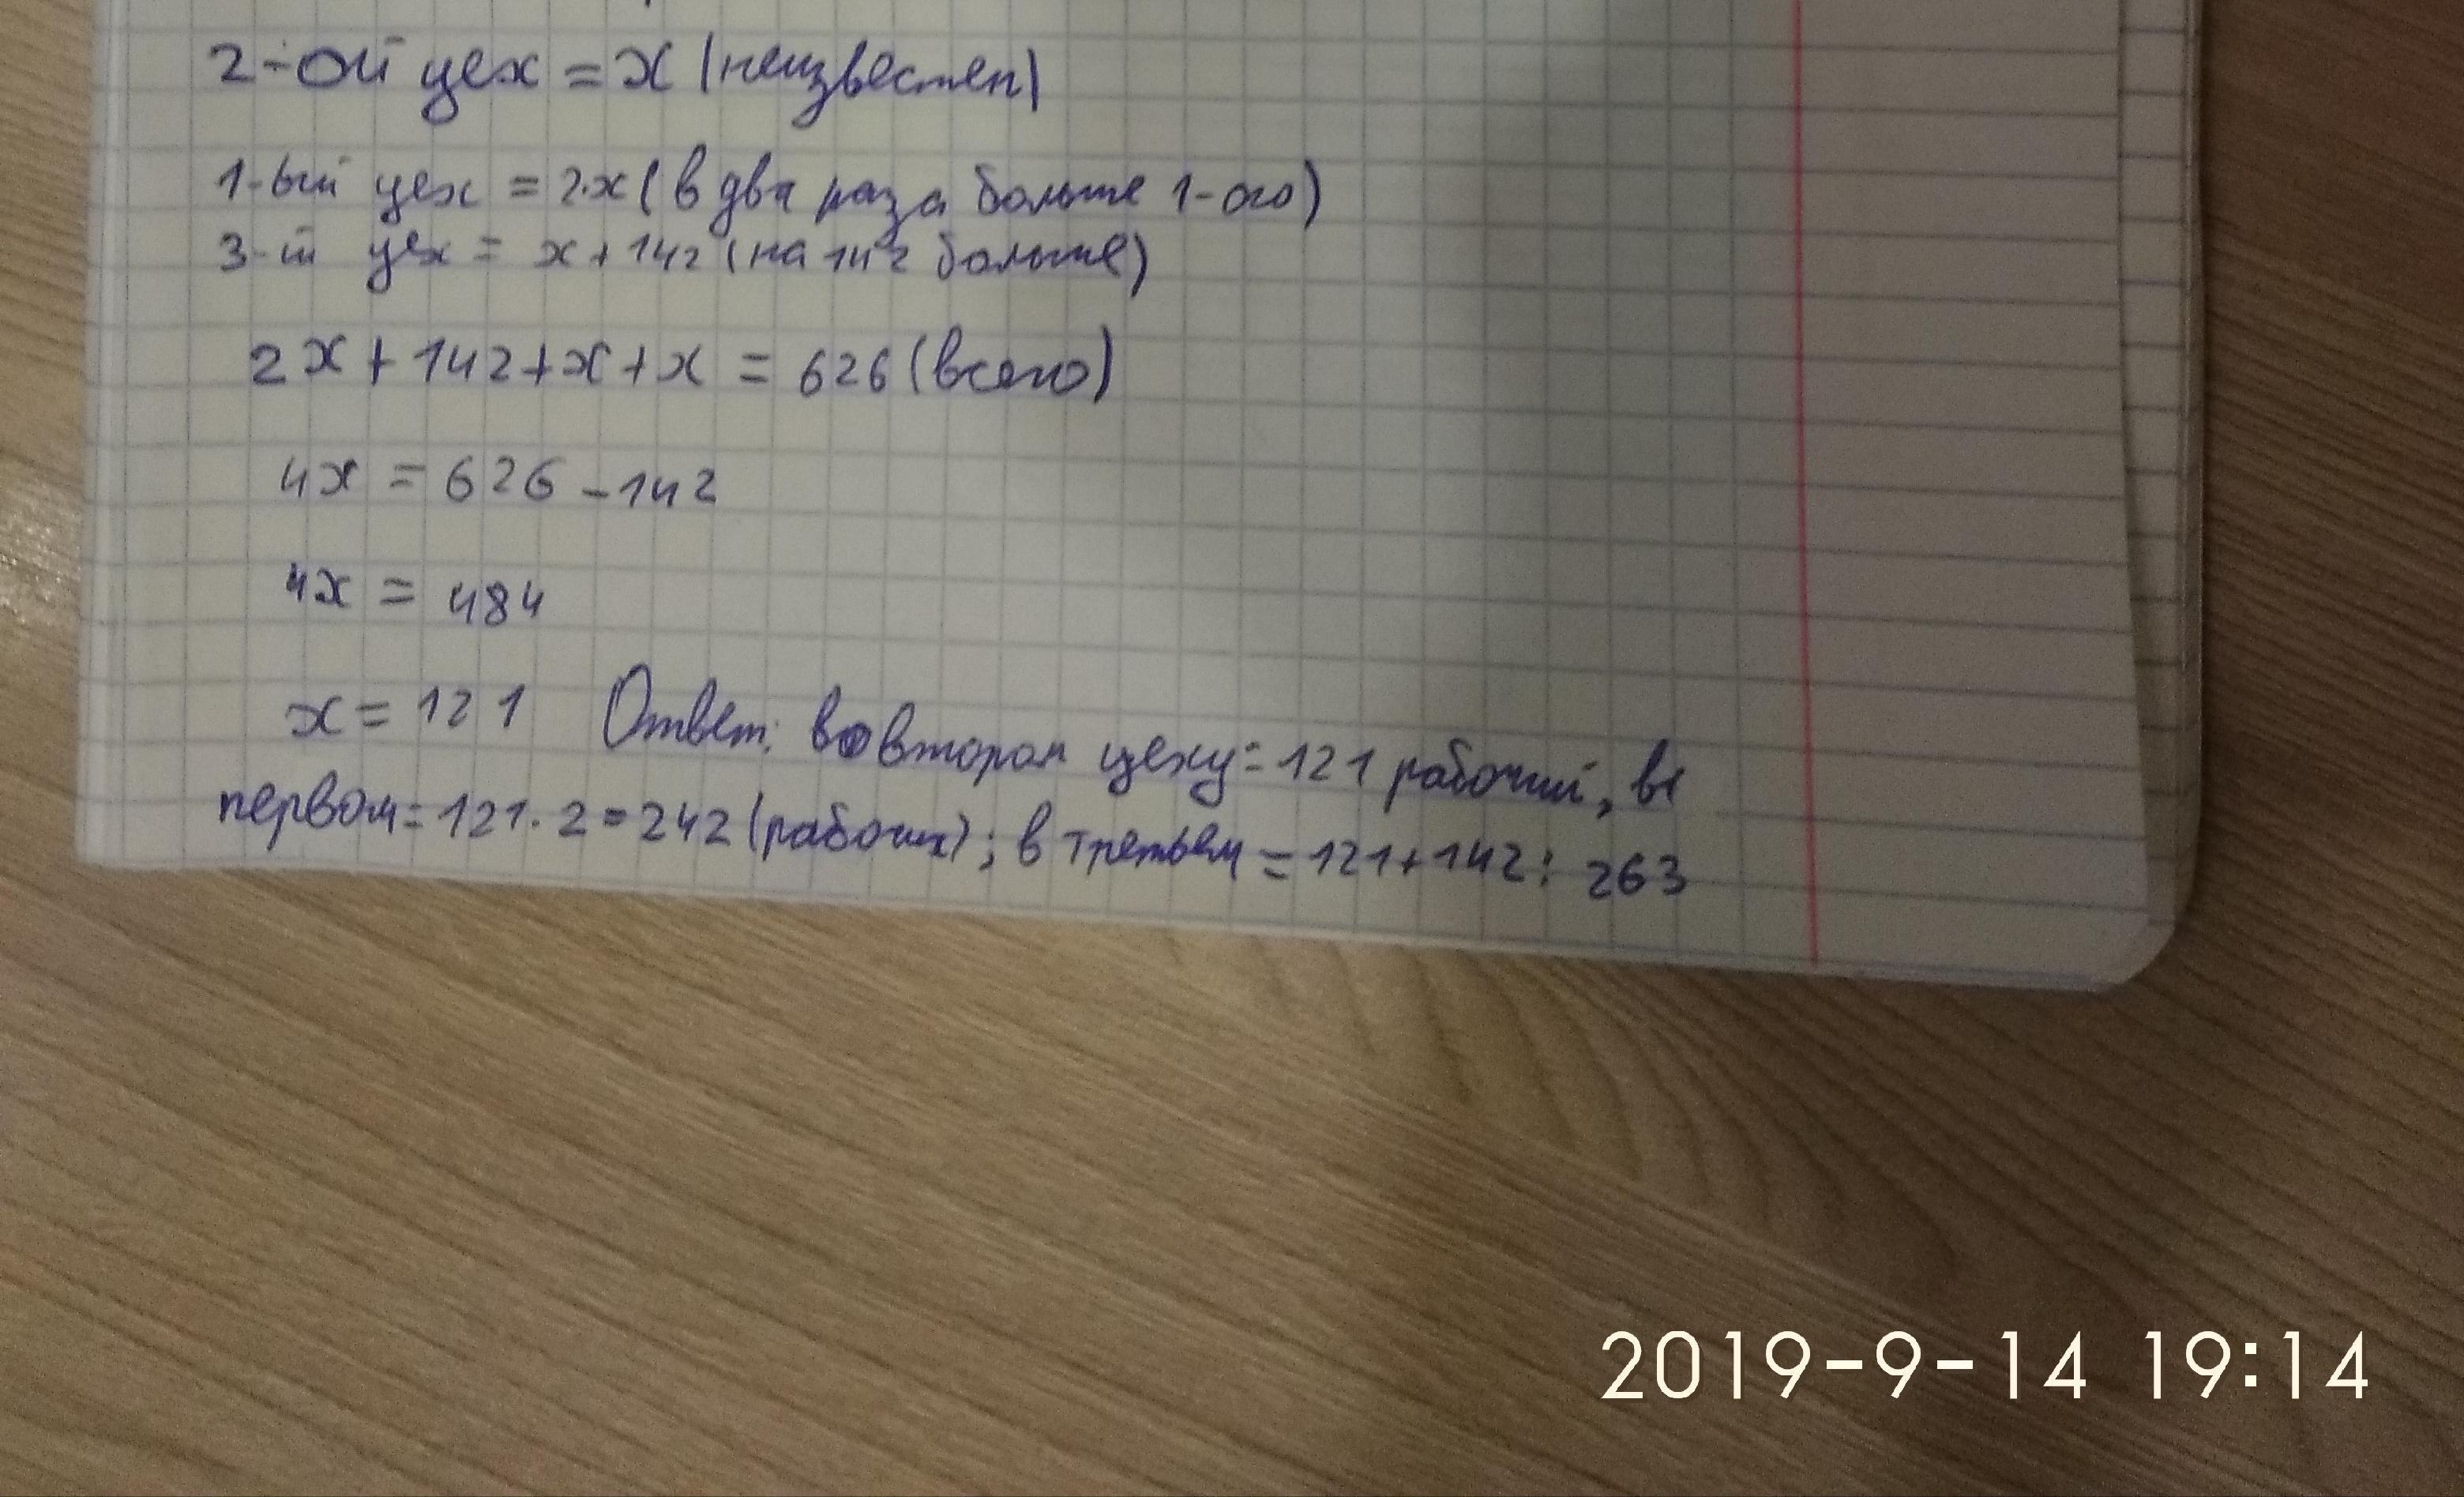 2-ой цех = x (неизвестен)
1-ый цех = 2·x (в два раза больше 1-ого)
3-й цех = x + 142 (на 142 больше)
2x + 142 + x + x = 626 (всего)
4x = 626 - 142
4x = 484
x = 121 Ответ: во втором цеху = 121 рабочий, в
первом = 121 · 2 = 242 (рабочих); в третьем = 121 + 142 = 263
2019-9-14 19:14